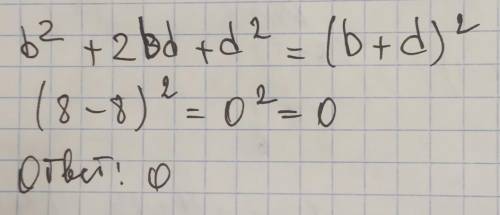 b² + 2bd + d² = (b + d)²
(8 - 8)² = 0² = 0
Ответ: 0